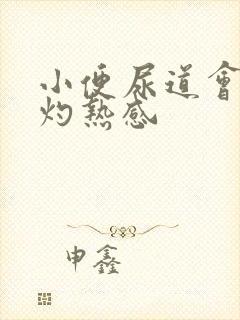 小便尿道會
灼熱感
申鑫